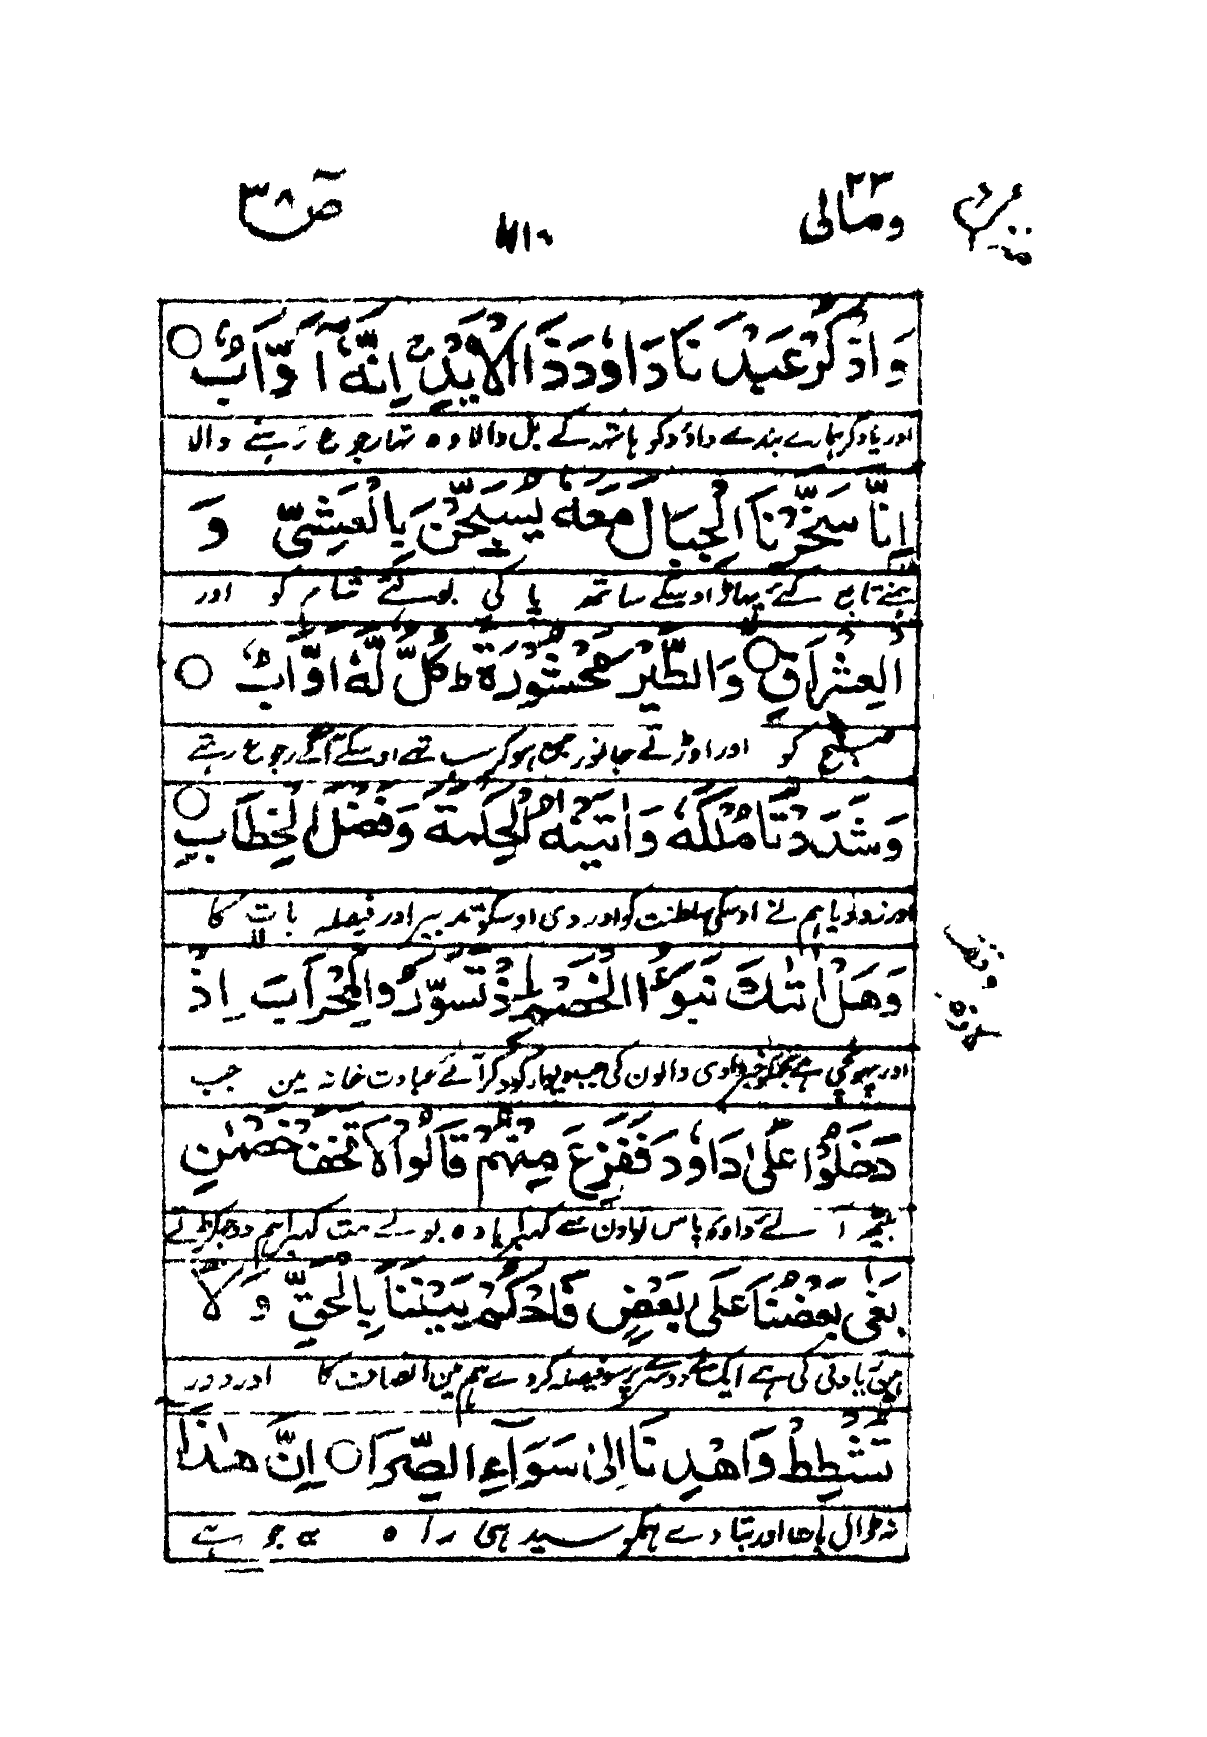 ومالی ۲۳
صٓ ۳۸
وَاذْكُرْ عَبْدَنَا دَاوٗدَ ذَا الْاَيْدِ ۚ اِنَّهٗٓ اَوَّابٌ ○
اور یاد کر ہمارے بندے داؤد کو ہاتھہ کے بل والا وہ تھا رجوع رہنے والا
اِنَّا سَخَّرْنَا الْجِبَالَ مَعَهٗ يُسَبِّحْنَ بِالْعَشِيِّ وَ
ہمنے تابع کئے پہاڑ اوسکے ساتھہ پاکی بولتے شام کو اور
الْعِشْرَاقِ ○ وَالطَّيْرَ مَحْشُوْرَةً ط كُلٌّ لَّهٗٓ اَوَّابٌ ○
صبح کو اور اوڑتے جانور جمع ہو کر سب تھے اوسکے آگے رجوع رہتے
وَشَدَدْنَا مُلْكَهٗ وَاٰتَيْنٰهُ الْحِكْمَةَ وَفَصْلَ الْخِطَابِ ○
اور زور دیا ہم نے اوسکی سلطنت کو اور دی اوسکو تدبیر اور فیصلہ بات کا
وَهَلْ اَتٰىكَ نَبَؤُا الْخَصْمِ اِذْ تَسَوَّرُوا الْمِحْرَابَ اِذْ
اور پہونچی ہے تجھکو خبر دعوی والون کی جب دیوار کود کر آئے عبادت خانہ مین جب
دَخَلُوْا عَلٰى دَاوٗدَ فَفَزِعَ مِنْهُمْ قَالُوْا لَا تَخَفْ خَصْمٰنِ
آئے داود پاس تو اون سے گھبرایا وہ بولے مت گھبرا ہم دو جھگڑتے
بَغٰى بَعْضُنَا عَلٰى بَعْضٍ فَاحْكُمْ بَيْنَنَا بِالْحَقِّ وَلَا
زیادتی کی ہے ایک نے دوسرے پر سو فیصلہ کر دے ہم مین انصاف کا اور دور
تُشْطِطْ وَاهْدِنَا اِلٰى سَوَآءِ الصِّرَا ○ اِنَّ هٰذَا
نہ ڈال بات اور بتا دے ہمکو سیدہی راہ یہ جو ہے